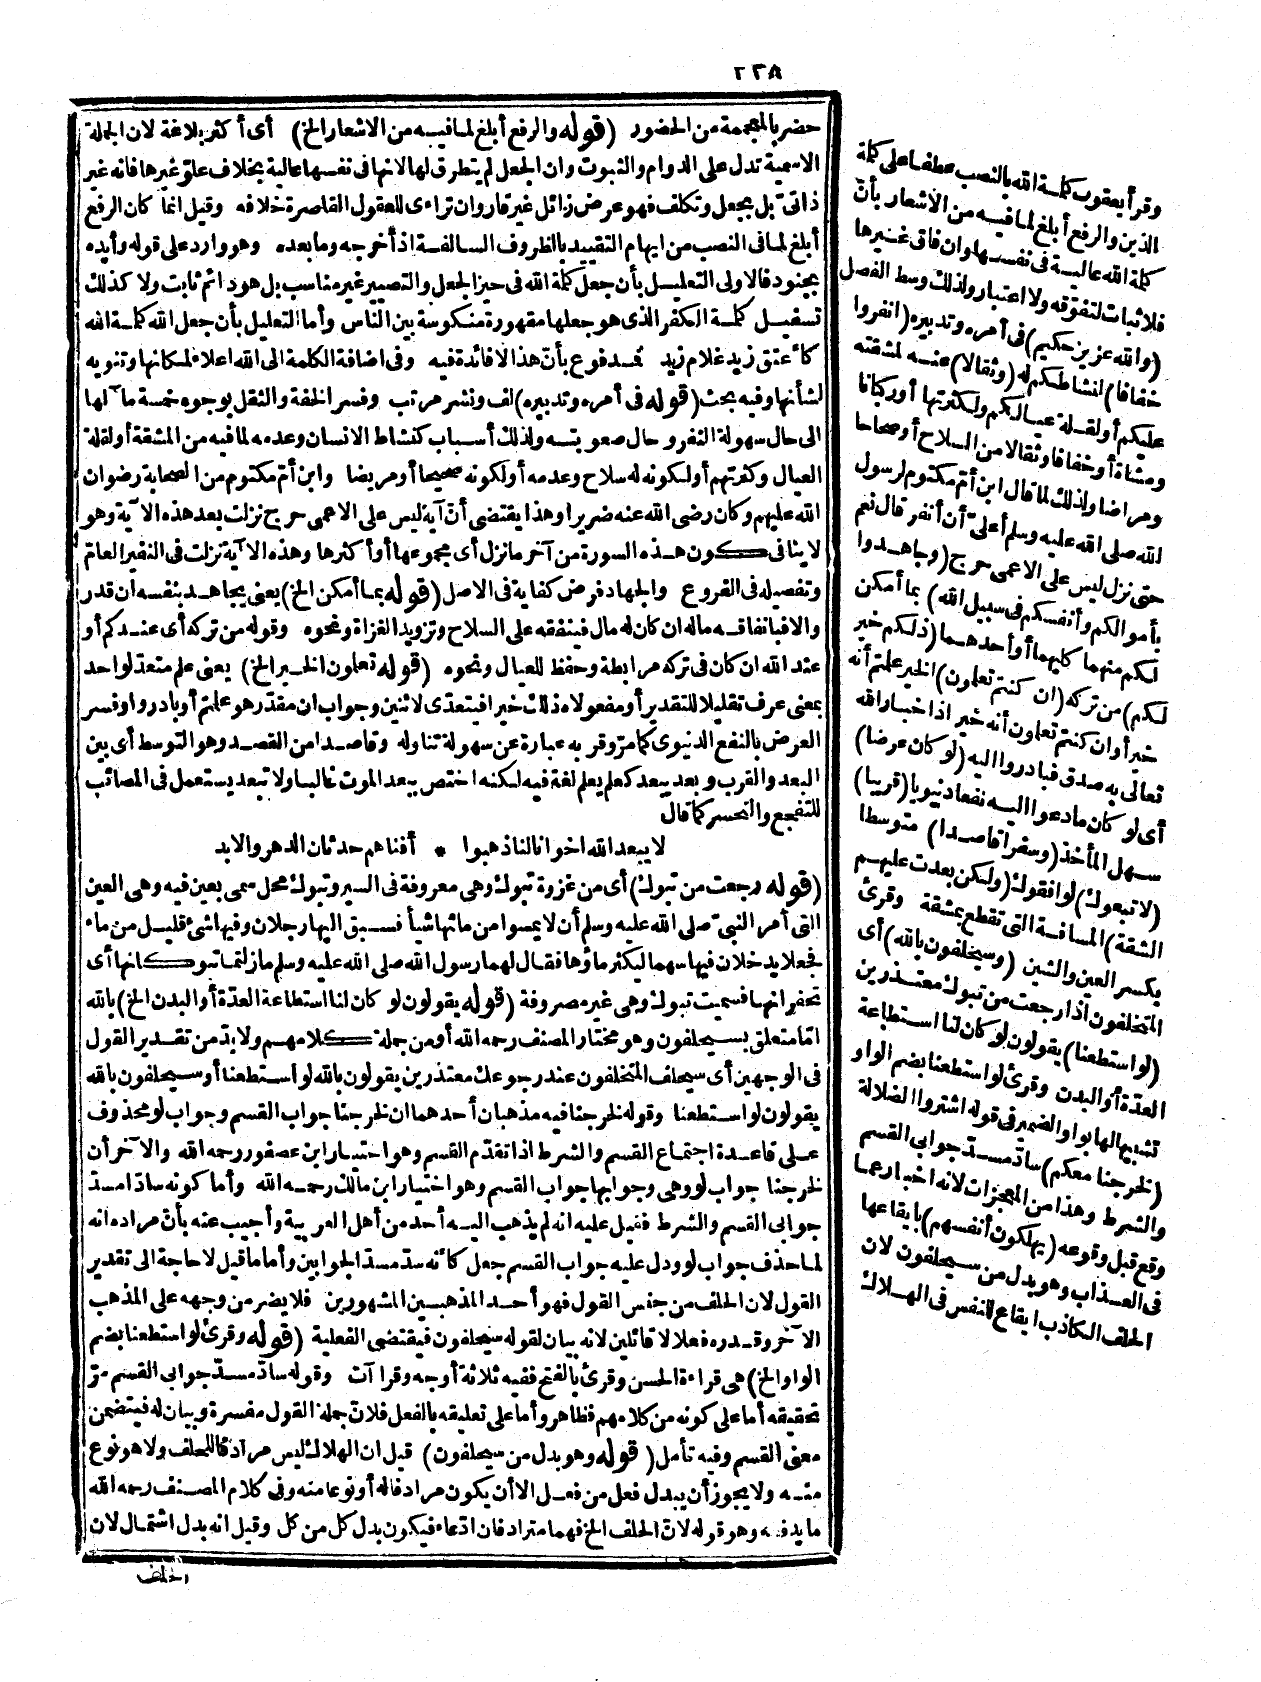 ٢٢٨
حضر بالمعجمة من الحضور (قوله والرفع أبلغ لما فيه من الاشعار الخ) أى أكثر بلاغة لان الجملة
الاسمية تدل على الدوام والثبوت وان الجعل لم يتطرق لها لانها فى نفسها عالية بخلاف علوّ غيرها فانه غير
ذاتىّ بل بجعل وتكلف فهو عرض زائل غير قار وان تراءى للعقول القاصرة خلافه وقيل انما كان الرفع
أبلغ لما فى النصب من ايهام التقييد بالظروف السالفة اذ أخرجه وما بعده وهو وارد على قوله وأيده
بجنود فالاولى التعليل بأن جعل كلمة الله فى حيز الجعل والتصيير غير مناسب بل هو دائم ثابت ولا كذلك
تسفيل كلمة الكفر الذى هو جعلها مقهورة منكوسة بين الناس وأما التعليل بأن جعل الله كلمة الله
كأعتق زيد غلام زيد فمدفوع بأنّ هذا لا فائدة فيه وفى اضافة الكلمة الى الله اعلاء لمكانها وتنويه
لشأنها وفيه بحث (قوله فى أمره وتدبيره) لف ونشر مرتب وفسر الخفة والثقل بوجوه خمسة مآلها
الى حال سهولة النفر وحال صعوبته ولذلك أسباب كنشاط الانسان وعدمه لما فيه من المشقة أو لقلة
العيال وكثرتهم أو لكونه له سلاح وعدمه أو لكونه صحيحا أو مريضا وابن أمّ مكتوم من الصحابة رضوان
الله عليهم وكان رضى الله عنه ضريرا وهذا يقتضى أنّ آية ليس على الاعمى حرج نزلت بعد هذه الآية وهو
لا ينافى كون هذه السورة من آخر ما نزل أى مجموعها أو أكثرها وهذه الآية نزلت فى النفير العامّ
وتفصيله فى الفروع والجهاد فرض كفاية فى الاصل (قوله بما أمكن الخ) يعنى يجاهد بنفسه ان قدر
والا فبانفاقه ماله ان كان له مال فينفقه على السلاح وتزويد الغزاة ونحوه وقوله من تركه أى عندكم أو
عند الله ان كان فى تركه مرابطة وحفظ للعيال ونحوه (قوله تعلمون الخير الخ) يعنى علم متعدّ لواحد
بمعنى عرف تقليلا للتقدير أو مفعولاه ذلك خيرا فيتعدّى لاثنين وجواب ان مقدّر هو علمتم أو بادروا وفسر
العرض بالنفع الدنيوى كما مرّ وقريبه عبارة عن سهولة تناوله وقاصدا من القصد وهو التوسط أى بين
البعد والقرب وبعد يبعد كعلم يعلم لغة فيه لكنه اختص ببعد الموت غالبا ولا تبعد يستعمل فى المصائب
للتفجع والتحسر كما قال
لا يبعد الله اخوانا لنا ذهبوا * أفناهم حدثان الدهر والابد
(قوله رجعت من تبوك) أى من غزوة تبوك وهى معروفة فى السير وتبوك محل سمى بعين فيه وهى العين
التى أمر النبىّ صلى الله عليه وسلم أن لا يمسوا من مائها شيأ فسبق اليها رجلان وفيها شئ قليل من ماء
فجعلا يدخلان فيها سهما ليكثر ماؤها فقال لهما رسول الله صلى الله عليه وسلم ما زلتما تبوكانها أى
تحفرانها فسميت تبوك وهى غير مصروفة (قوله يقولون لو كان لنا استطاعة العدّة أو البدن الخ) بالله
امّا متعلق بسيحلفون وهو مختار المصنف رحمه الله أو من جملة كلامهم ولا بدّ من تقدير القول
فى الوجهين أى سيحلف المتخلفون عند رجوعك معتذرين يقولون بالله لو استطعنا أو سيحلفون بالله
يقولون لو استطعنا وقوله لخرجنا فيه مذهبان أحدهما ان لخرجنا جواب القسم وجواب لو محذوف
على قاعدة اجتماع القسم والشرط اذا تقدّم القسم وهو اختيار ابن عصفور رحمه الله والآخر أن
لخرجنا جواب لو وهى وجوابها جواب القسم وهو اختيار ابن مالك رحمه الله وأما كونه سادّا مسدّ
جوابى القسم والشرط فقيل عليه انه لم يذهب اليه أحد من أهل العربية وأجيب عنه بأنّ مراده انه
لما حذف جواب لو ودل عليه جواب القسم جعل كأنه سدّ مسدّ الجوابين وأما ما قيل لا حاجة الى تقدير
القول لان الحلف من جنس القول فهو أحد المذهبين المشهورين فلا يضر من وجهه على المذهب
الآخر وقدره فعلا لا قائلين لانه بيان لقوله سيحلفون فيقتضى الفعلية (قوله وقرئ لو استطعنا بضم
الواو الخ) هى قراءة الحسن وقرئ بالفتح ففيه ثلاثة أوجه وقرا آت وقوله سادّ مسدّ جوابى القسم مرّ
تحقيقه أما على كونه من كلامهم فظاهر وأما على تعليقه بالفعل فلانّ جملة القول مفسرة وبيان له فيتضمن
معنى القسم وفيه تأمل (قوله وهو بدل من سيحلفون) قيل ان الهلاك ليس مرادفا للحلف ولا هو نوع
منه ولا يجوز أن يبدل فعل من فعل الا أن يكون مرادفا له أو نوعا منه وفى كلام المصنف رحمه الله
ما يدفعه وهو قوله لانّ الحلف الخ فهما مترادفان ادّعاء فيكون بدل كل من كل وقيل انه بدل اشتمال لان
الحلف
وقرأ يعقوب كلمة الله بالنصب عطفا على كلمة
الذين والرفع أبلغ لما فيه من الاشعار بأنّ
كلمة الله عالية فى نفسها وان فاق غيرها
فلا ثبات لتفوّقه ولا اعتبار ولذلك وسط الفصل
(والله عزيز حكيم) فى أمره وتدبيره (انفروا
خفافا) لنشاطكم له (وثقالا) عنه لمشقته
عليكم أو لقلة عيالكم ولكثرتها أو ركبانا
ومشاة أو خفافا وثقالا من السلاح أو صحاحا
ومراضا ولذلك لما قال ابن أمّ مكتوم لرسول
الله صلى الله عليه وسلم أعلىّ أن أنفر قال نعم
حتى نزل ليس على الاعمى حرج (وجاهدوا
بأموالكم وأنفسكم فى سبيل الله) بما أمكن
لكم منهما كليهما أو أحدهما (ذلكم خير
لكم) من تركه (ان كنتم تعلمون) الخير علمتم أنه
خير أو ان كنتم تعلمون أنه خير اذ اخبار الله
تعالى به صدق فبادروا اليه (لو كان عرضا)
أى لو كان ما دعوا اليه نفعا دنيويا (قريبا)
سهل المأخذ (وسفرا قاصدا) متوسطا
(لاتبعوك) لوافقوك (ولكن بعدت عليهم
الشقة) المسافة التى تقطع بمشقة وقرئ
بكسر العين والشين (وسيحلفون بالله) أى
المتخلفون اذا رجعت من تبوك معتذرين
(لو استطعنا) يقولون لو كان لنا استطاعة
العدّة أو البدن وقرئ لو استطعنا بضم الواو
تشبيها لها بواو الضمير فى قوله اشتروا الضلالة
(لخرجنا معكم) سادّ مسدّ جوابى القسم
والشرط وهذا من المعجزات لانه اخبار عما
وقع قبل وقوعه (يهلكون أنفسهم) بايقاعها
فى العذاب وهو بدل من سيحلفون لان
الحلف الكاذب ايقاع للنفس فى الهلاك